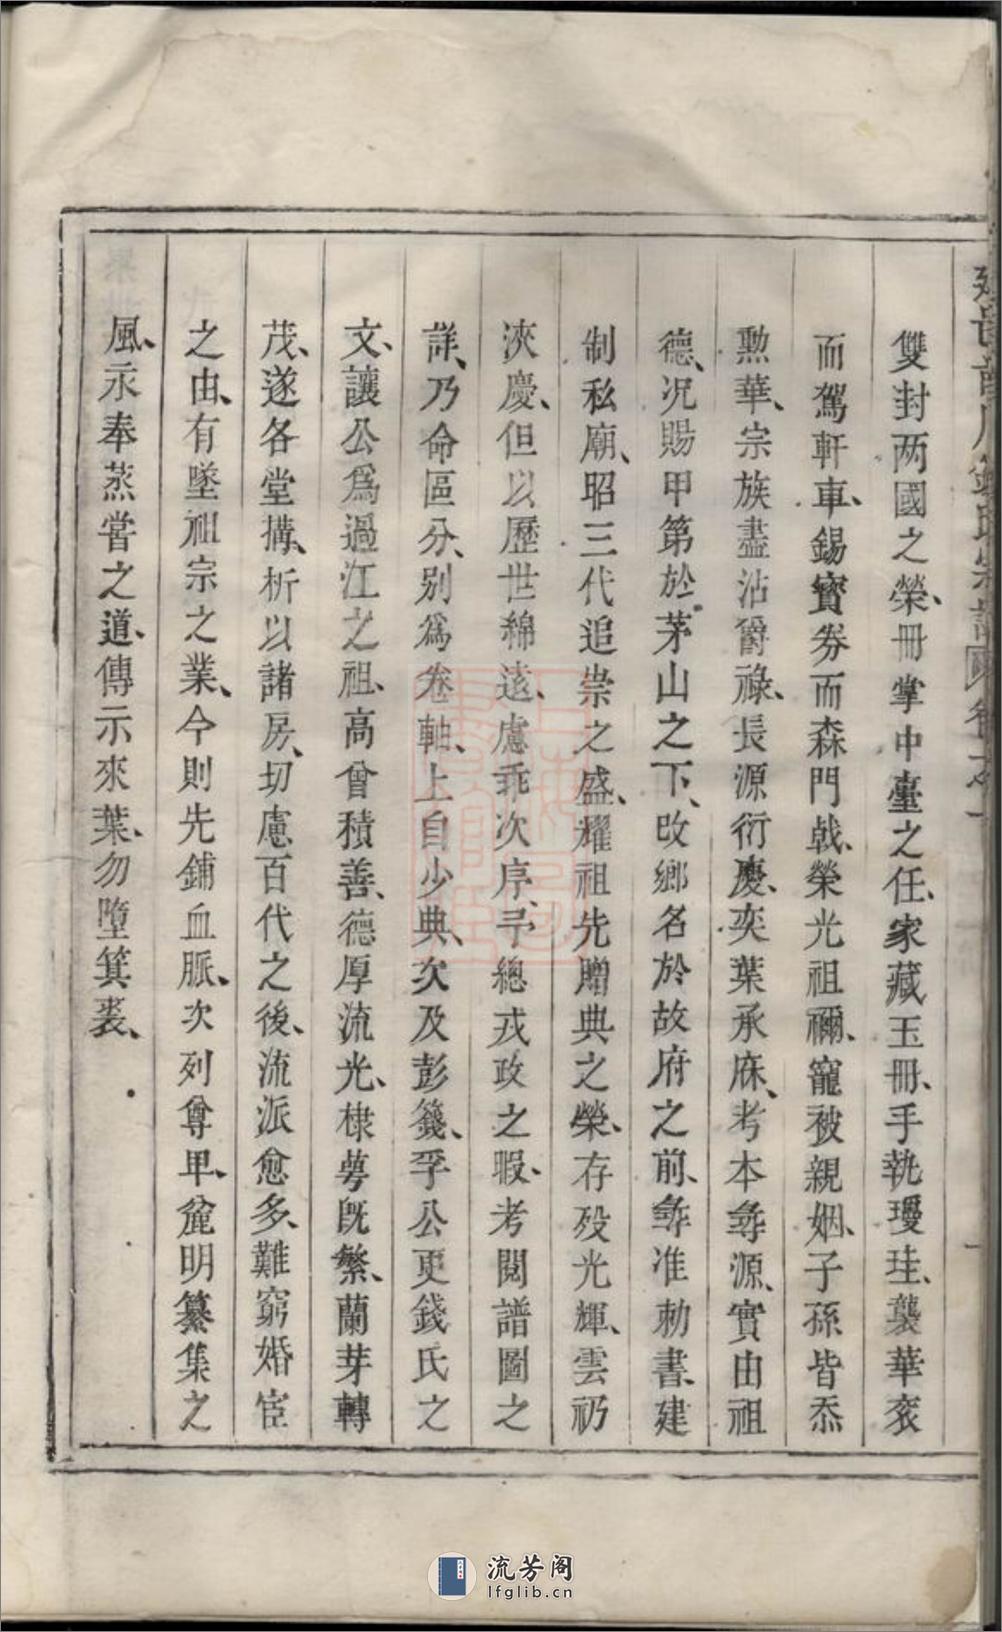 雙封两國之榮、冊掌中臺之任、家藏玉冊、手執瓊珪、襲華衮
而駕軒車、錫寳券而森門戟、榮光祖禰、寵被親姻、子孫皆忝
勲華、宗族盡沾爵祿、長源衍慶、奕葉承庥、考本彞源、實由祖
德、况賜甲第於茅山之下、改鄉名於故府之前、彞准勅書、建
制私廟、昭三代追崇之盛、耀祖先贈典之榮、存殁光輝、雲礽
浹慶、但以歷世綿遠、慮乖次序、弓總戎政之暇、考閲譜圖之
詳、乃命區分、别爲卷軸、上自少典、次及彭籛、孚公更錢氏之
文、讓公爲過江之祖、高曾積善、德厚流光、棣萼旣繁、蘭芽轉
茂、遂各堂搆、析以諸房、切慮百代之後、流派愈多、難窮婚宦
之由、有墜祖宗之業、今則先鋪血脈、次列尊卑、㒰明纂集之
風、永奉蒸嘗之道、傳示來葉、勿墮箕裘、
流芳阁
lfglib.cn